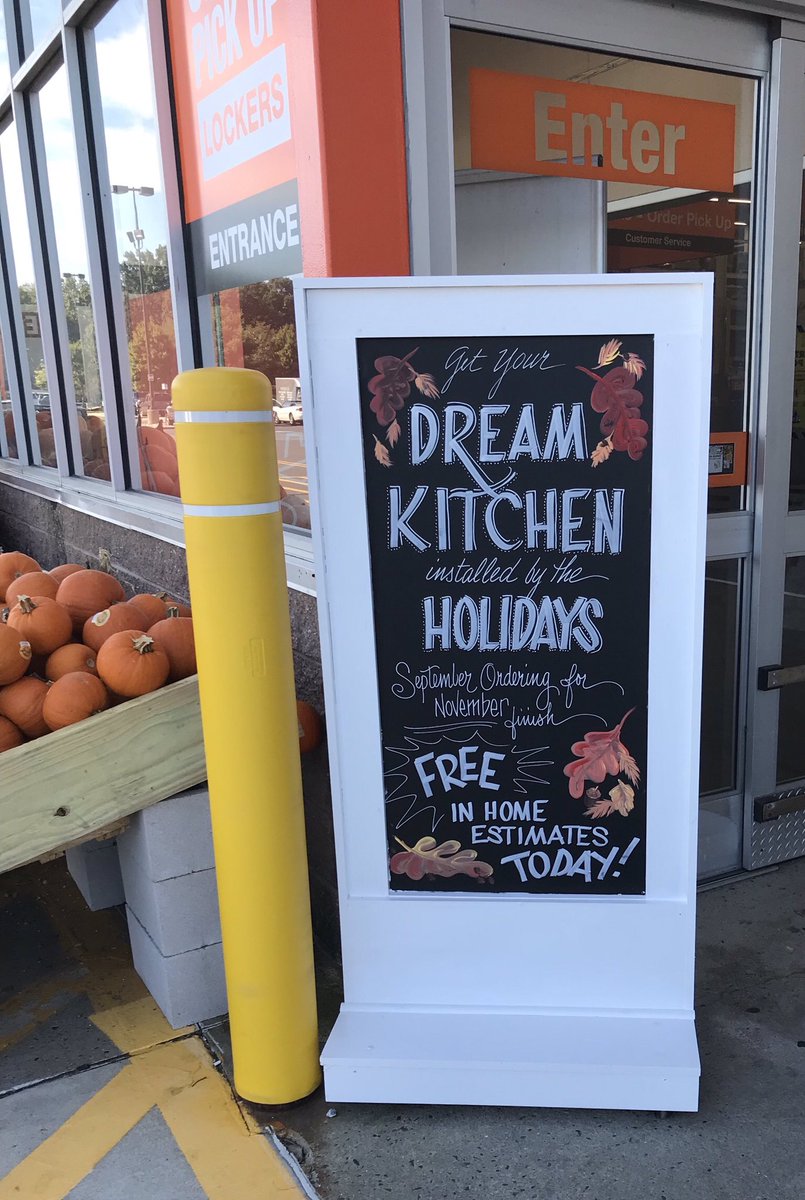 PICK UP
LOCKERS
ENTRANCE
Enter
Order Pick Up
Customer Service
Get Your
DREAM
KITCHEN
installed by the
HOLIDAYS
September Ordering for
November finish
FREE
IN HOME
ESTIMATES
TODAY!